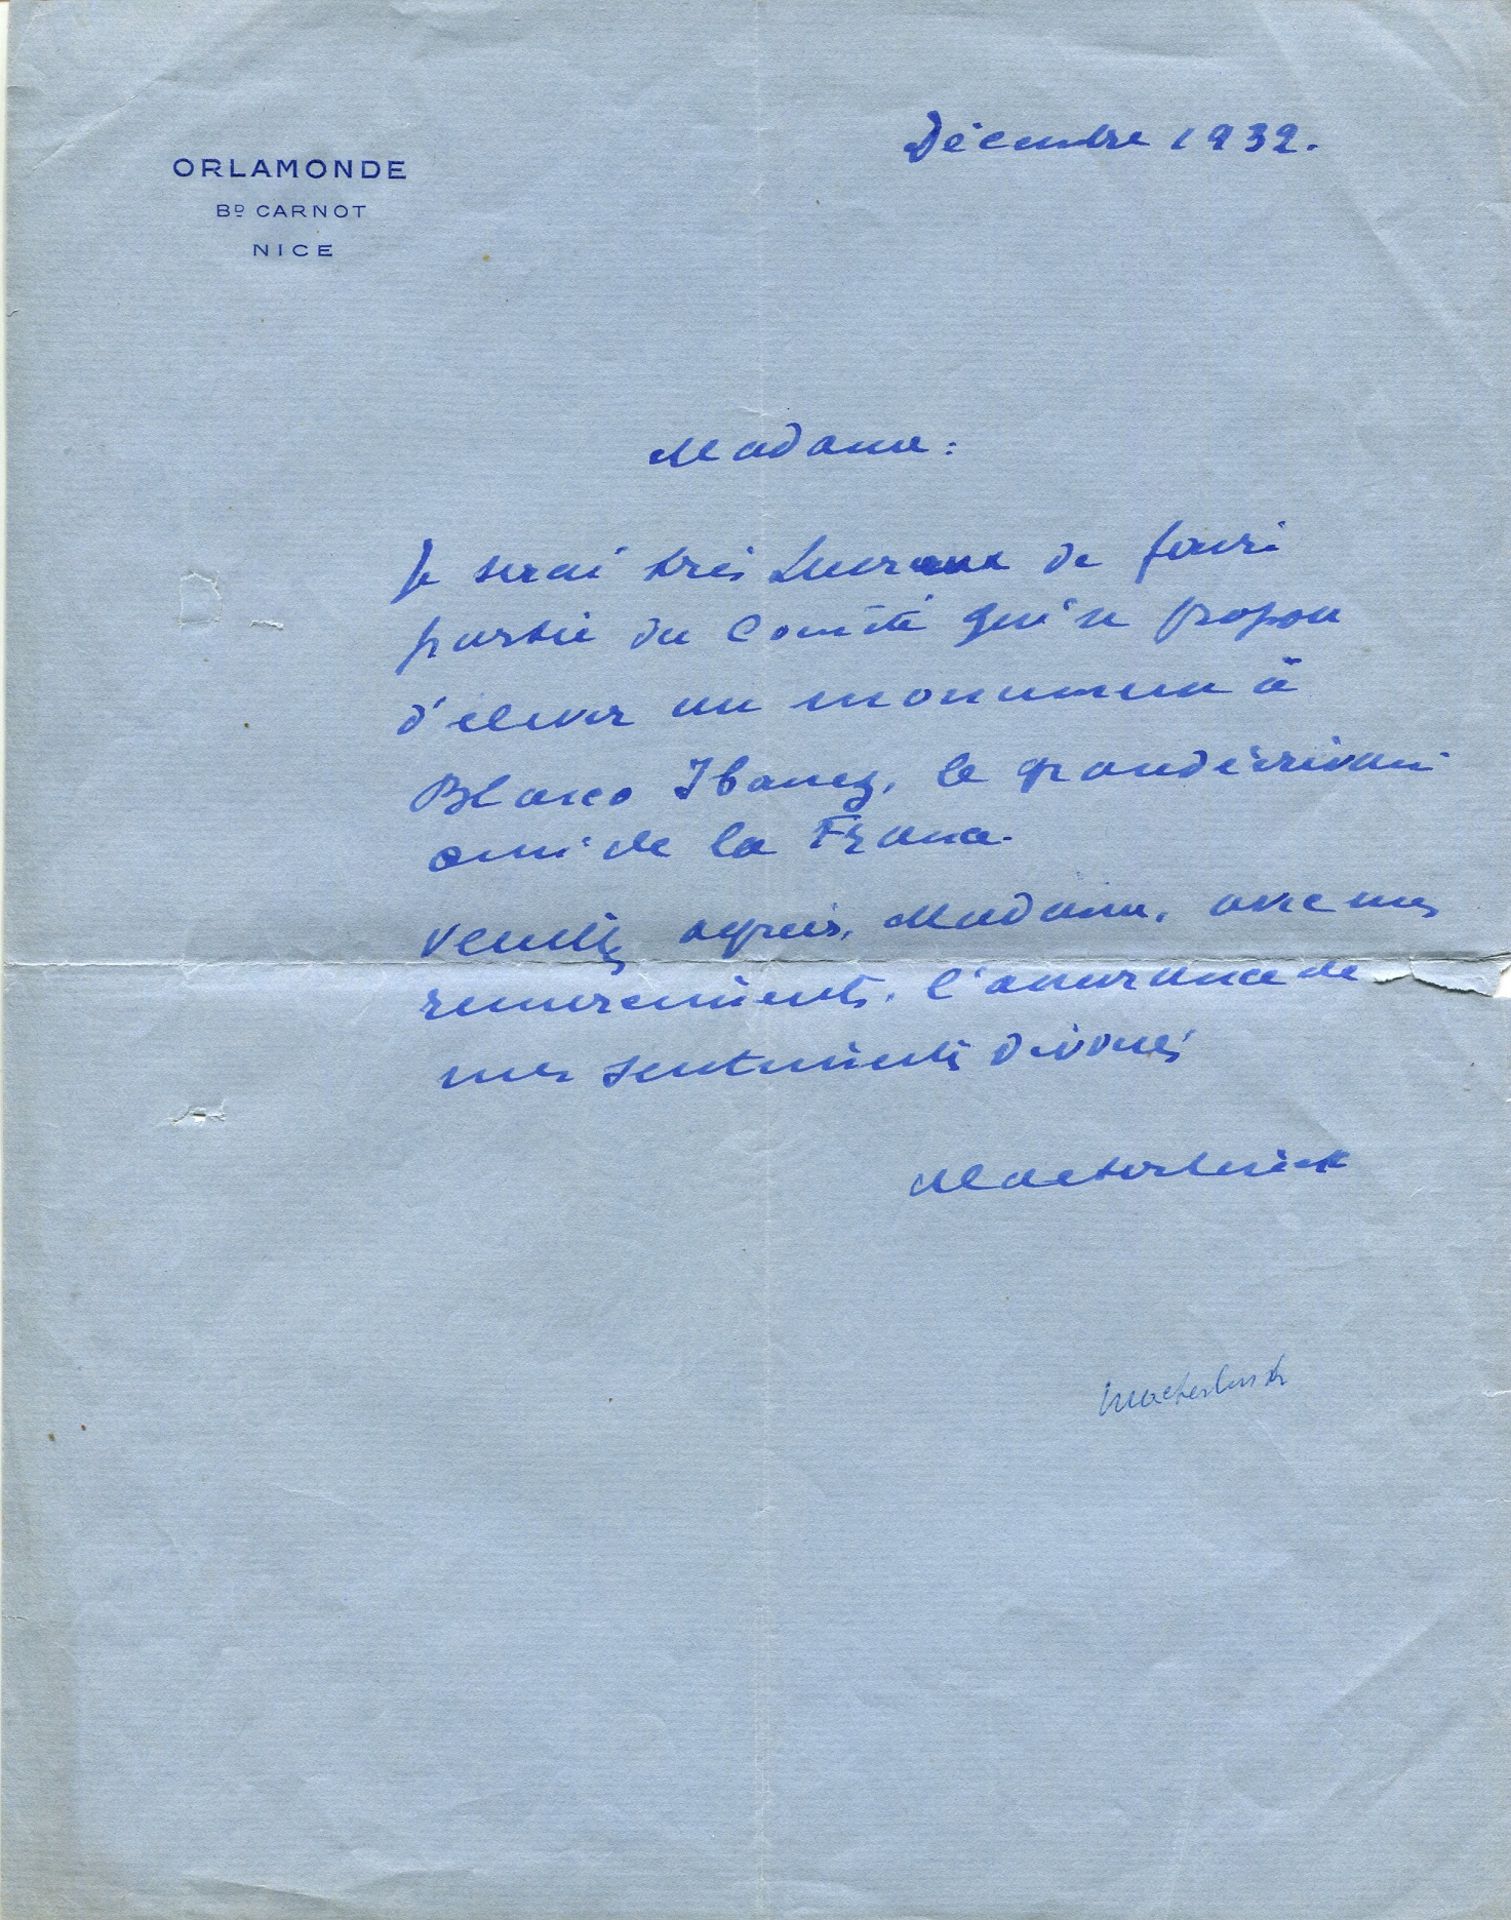 ORLAMONDE
Bᴰ CARNOT
NICE
Décembre 1932.
Madame :
Je serai très heureux de faire
partie du Comité qui se propose
d'élever un monument à
Blasco Ibanez, le grand écrivain
ami de la France.
Veuillez agréer, Madame, avec mes
remerciements, l'assurance de
mes sentiments dévoués
Maeterlinck
Maeterlinck